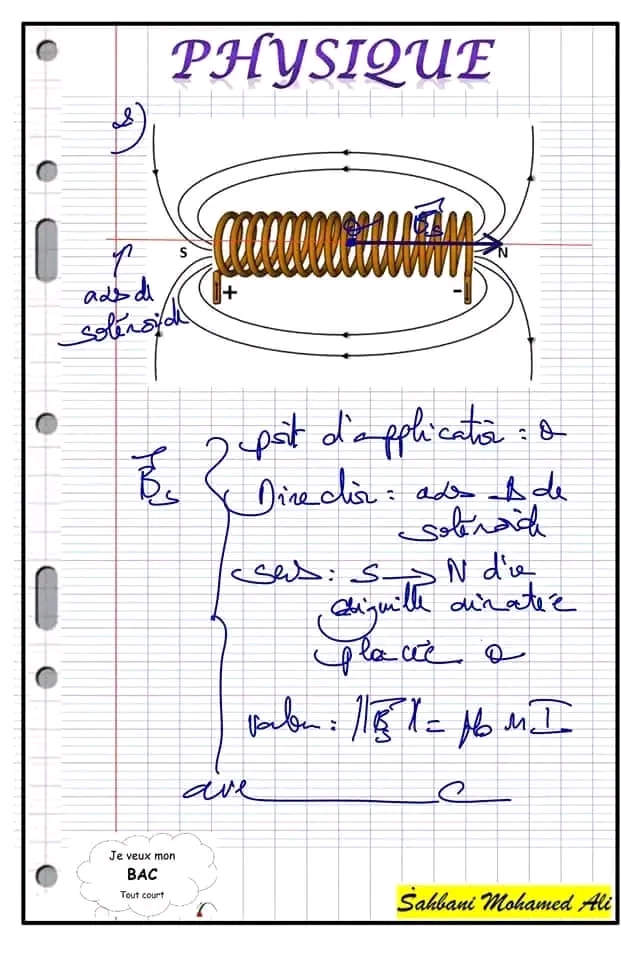 PHYSIQUE
B⃗s
S
N
+
-
axe du
solénoïde
B⃗s
point d'application : O
Direction : axe Δ de
solénoïde
sens : S → N d'une
aiguille aimantée
placée O
valeur : ||B⃗s|| = μ0 n I
Je veux mon
BAC
Tout court
Sahbani Mohamed Ali